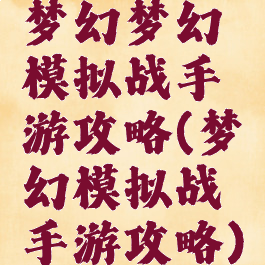 梦幻梦幻
模拟战手
游攻略(梦
幻模拟战
手游攻略)